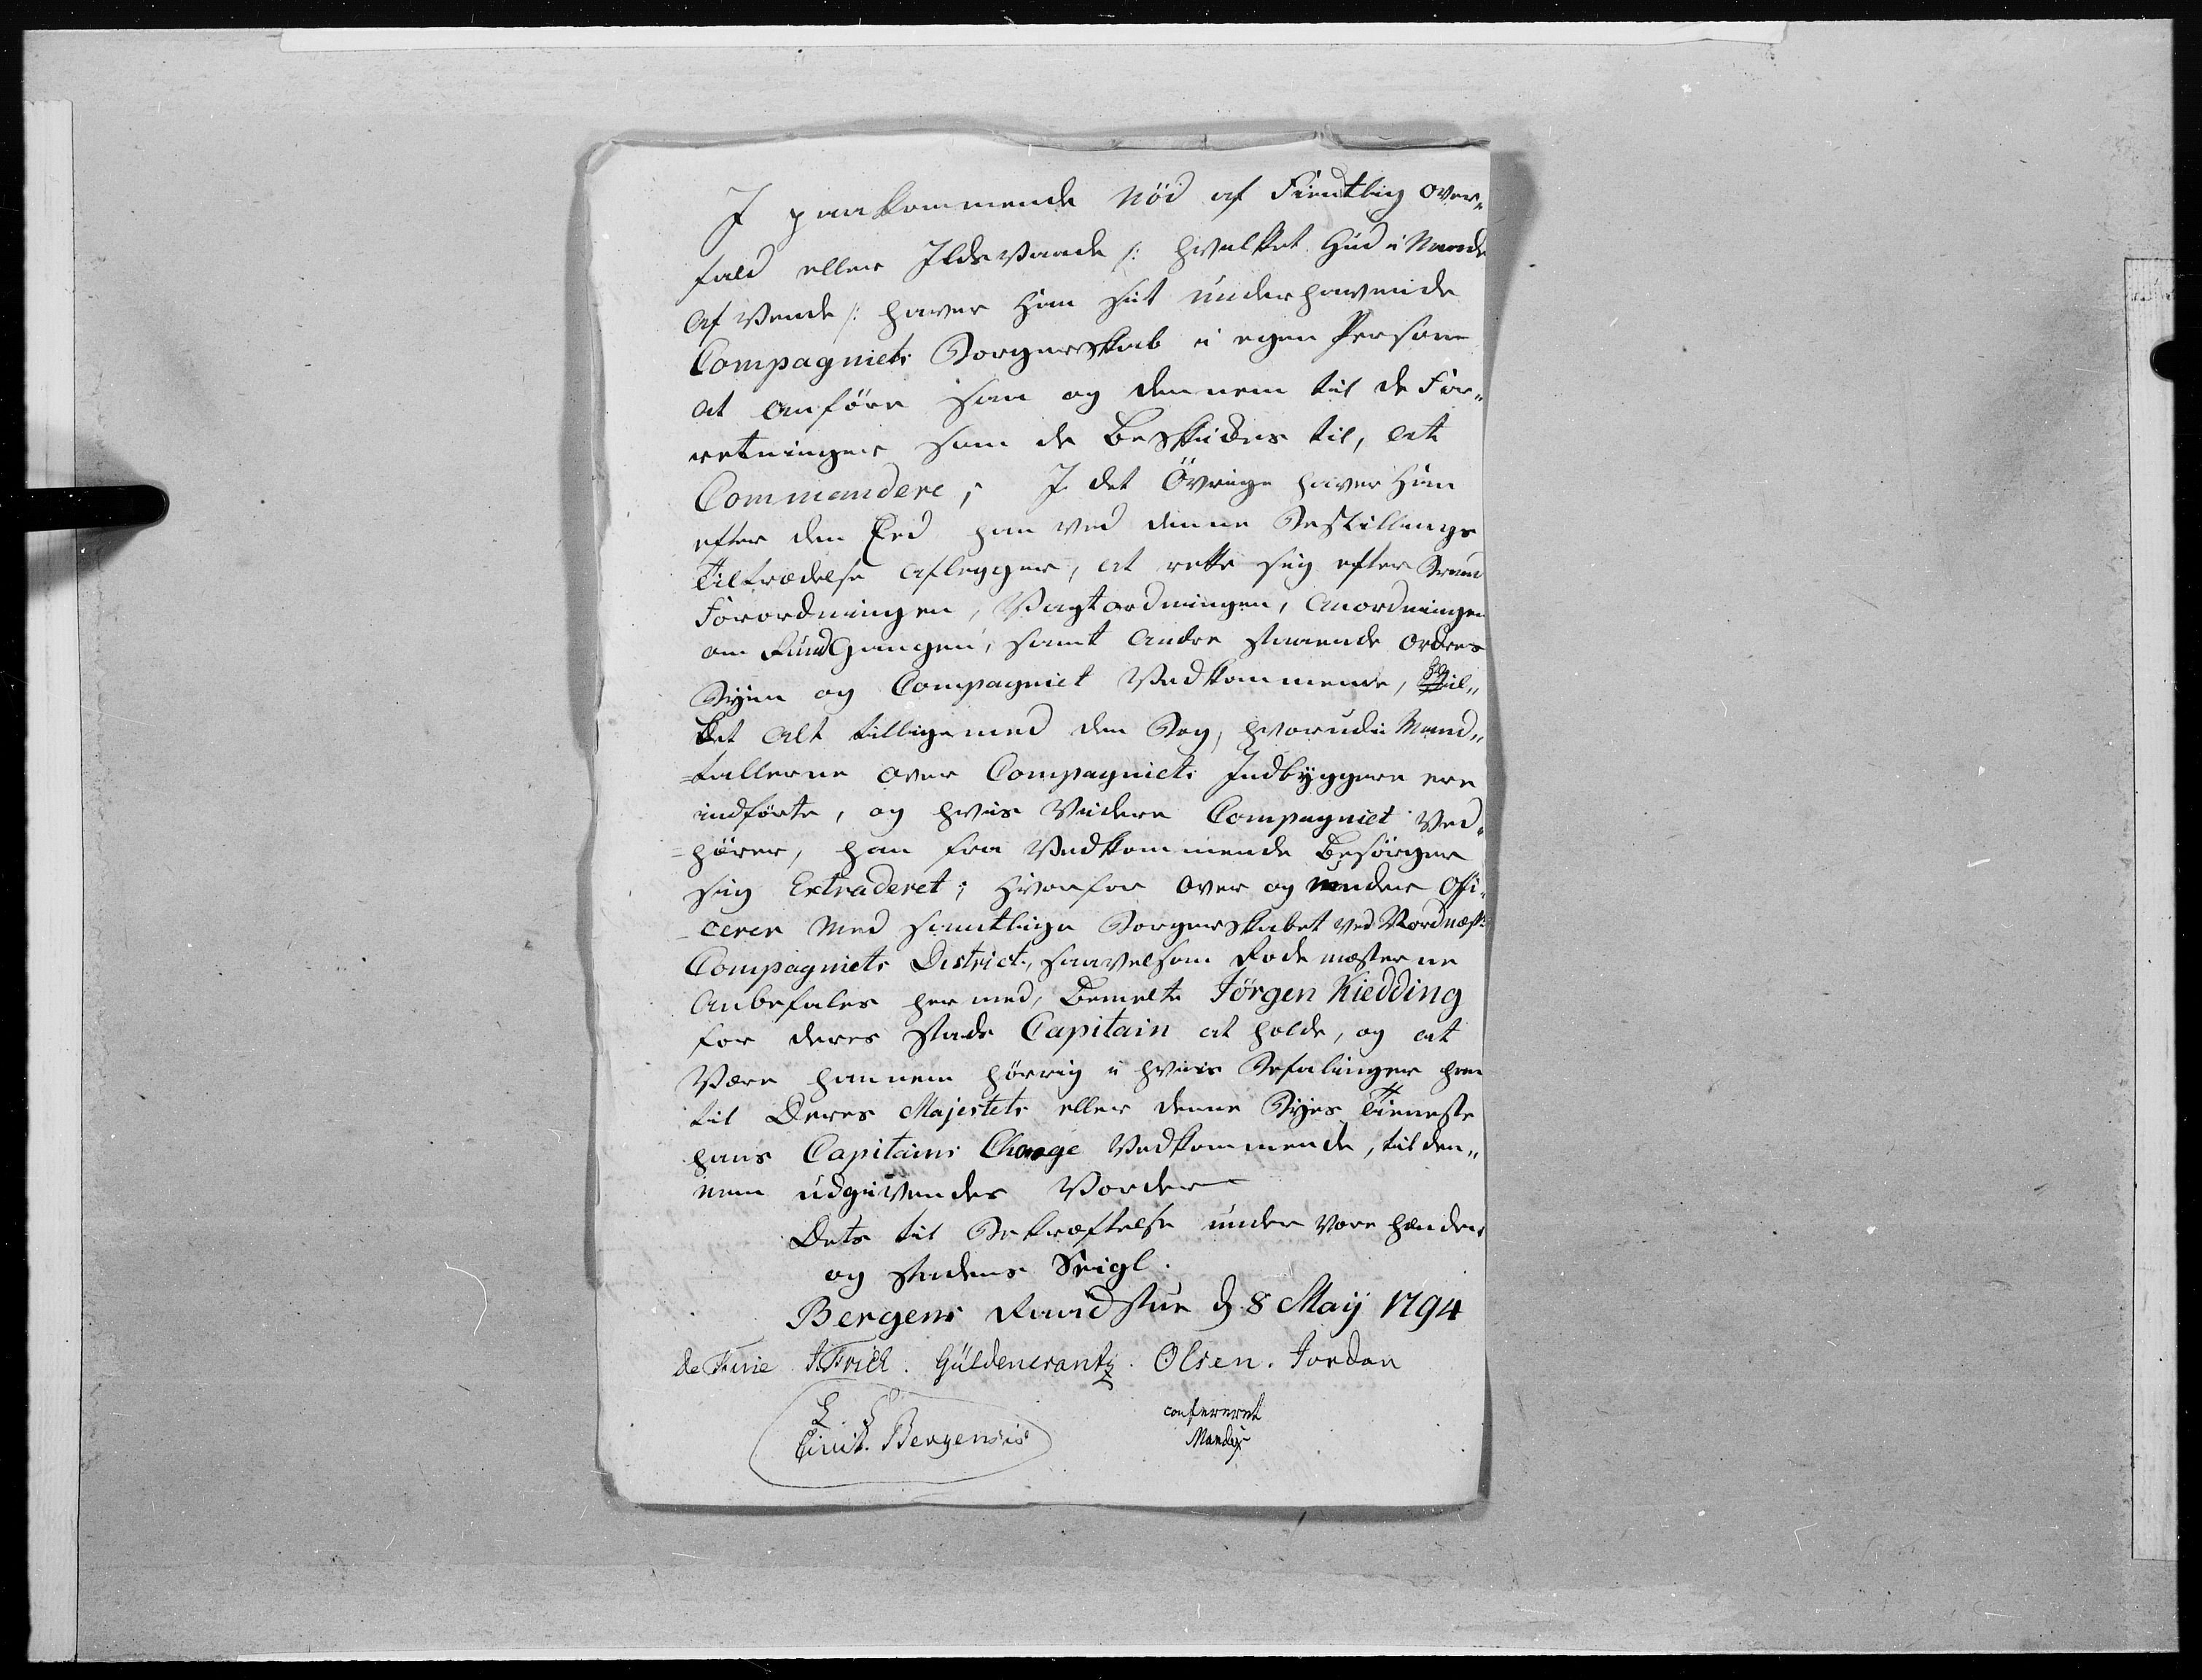 I paakommende Nöd af Fiendtlig Over„
fald eller Ildsvaade /: hvilket Gud i Naade
af Vende :/ haver Han sit underhavende
Compagniets Borgerskab i egen Persohn
at anföre saa og dennem til de For„
retninger som de Beskikkes til, at
Commandere; I det Övrige haver Han
efter den Eed han ved denne Bestillings
Tiltrædelse aflegger, at rette sig efter Brand
Forordningen, Vagtordningen, Anordningen
om RundGangen, samt Andre staaende Ordres
Byen og Compagniet Vedkommende, Hvil„
ket alt tilligemed den Bog, hvorudi Mand„
-tallerne over Compagniets Indbyggere ere
indförte, og hvis Videre Compagniet Ved„
-hörer, han fra Vedkommende Besörger
sig Extraderet; Hvorfor Over og under Offi„
-cerer Med samtlige Borgerskabet ved Nordnæs
Compagniets District, saavelsom Rodemesterne
Anbefales her med, Bemelte Jörgen Kiedding
for deres Stads Capitain at holde, og at
Være hannem hörrig i hvis Befalinger han
til Deres Majestets eller denne Byes Tieneste
hans Capitains Charge Vedkommende, til den„
nem udgivendes Vorder
Dets til Bekræftelse under Vore hænder
og Stadens Seigl.
Bergens Raadstue d 8 Maij 1794
de Fine J. Frich. Güldencrantz. Olsen. Jordan
L S
Civit. Bergensis
confereret